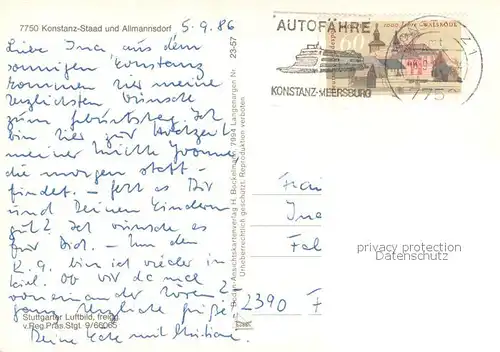 7750 Konstanz-Staad und Allmannsdorf
5.9.86
Liebe Ina, aus dem
sonnigen Konstanz
kommen hier meine
herzlichsten Wünsche
zum Geburtstag. Ich
bin hier zur Hochzeit
meiner Nichte Yvonne
die morgen statt-
findet. – geht es Dir
und Deinen Kindern
gut? Ich wünsche es
für Dich. – Um den
12.9. bin ich wieder in
Kiel. Ob wir da mal
voneinander hören?
Ganz herzliche Grüße
Deine und Christiane.
Stuttgarter Luftbild, freigg.
v.Reg.Präs.Stgt. 9/66065
23-57
Boden-Ansichtskartenverlag H. Bockelmann, 7994 Langenargen Nr.
Urheberrechtlich geschützt. Reproduktion verboten
AUTOFÄHRE
KONSTANZ-MEERSBURG
60
775
Frau
Ina
2390 F
privacy protection
Datenschutz